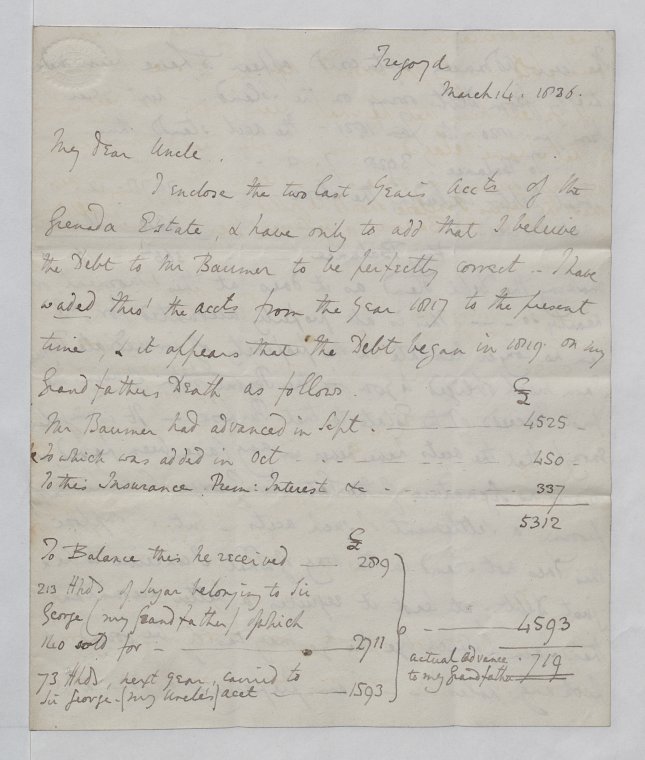 Tregoyd
March 14. 1836.
My dear Uncle.
I enclose the two last Years Accts of the
Grenada Estate, & have only to add that I beleive
the Debt to Mr Baumer to be perfectly correct - I have
waded thro' the accts from the Year 1817 to the present
time, & it appears that the Debt began in 1819 on my
Grandfathers Death as follows. £
Mr Baumer had advanced in Sept. 4525
To which was added in Oct 450
To this Insurance. Prem: Interest &c 337
5312
To Balance this he received £ 289
213 Hhds of Sugar belonging to Sir
George (my Grandfather) of which
140 sold for 2711
4593
73 Hhds, next year, carried to
Sir George - (my Uncle's) acct 1593
actual advance 719
to my Grandfather